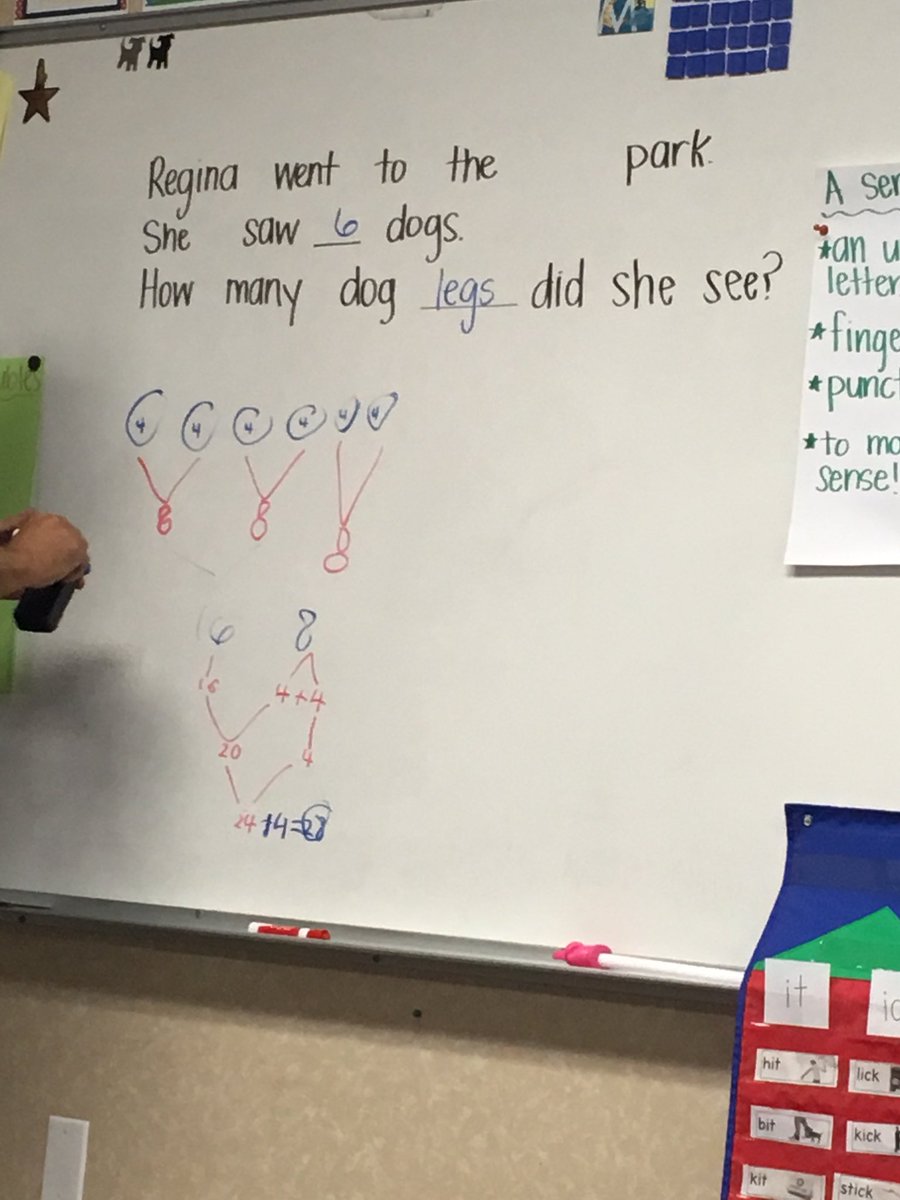 Regina went to the park.
She saw 6 dogs.
How many dog legs did she see?
4 4 4 4 4 4
8 8 8
16 8
16 4+4
20 4
24+4=28
A ser
*an u
letter
*finge
*punct
*to mo
sense!
it
hit lick
bit kick
kit stick